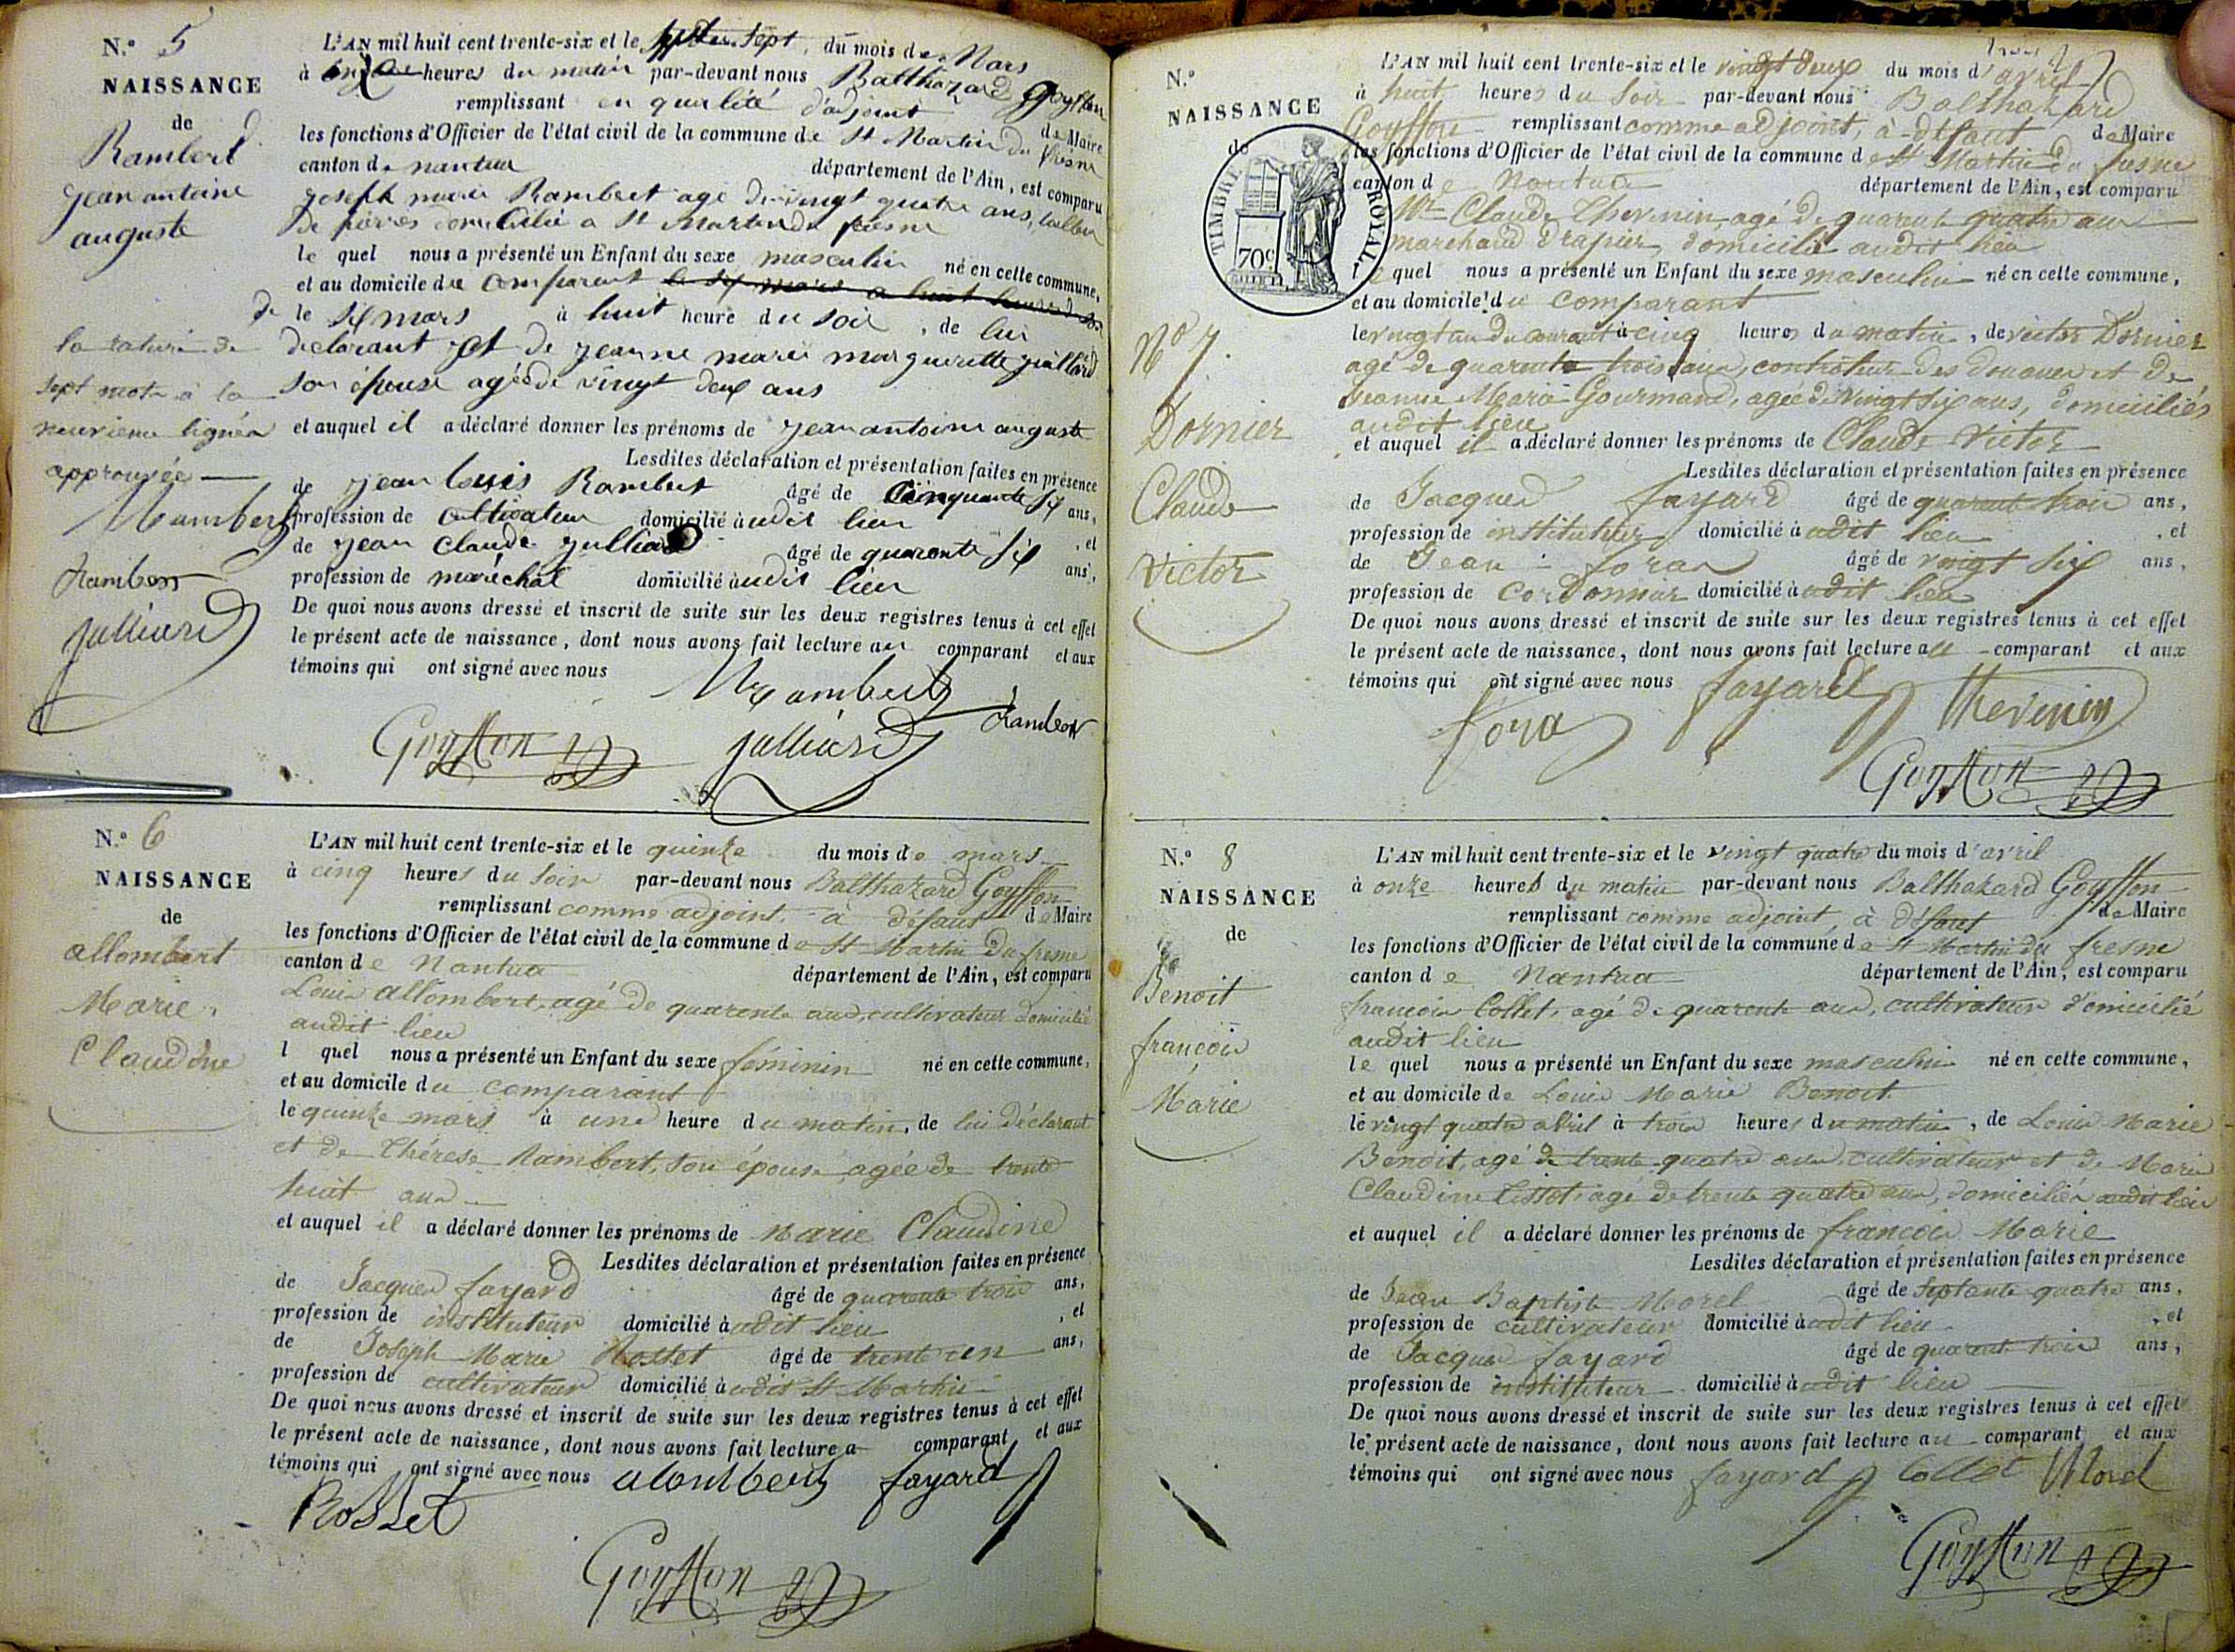 N.º 5
NAISSANCE
de
Rambert
jean antoine
auguste
L'AN mil huit cent trente-six et le sept du mois de Mars
à onze heures du matin par-devant nous Balthazard Goyffon
remplissant en qualité d'adjoint de Maire
les fonctions d'Officier de l'état civil de la commune de St Martin du fresne
canton de nantua département de l'Ain, est comparu
joseph marie Rambert agé de vingt quatre ans, tailleur
de pierres domicilié a St Martin du fresne
le quel nous a présenté un Enfant du sexe masculin né en cette commune,
et au domicile du comparant le six mars a huit heures du
de le six mars à huit heure du soir, de lui
declarant et de jeanne marie margueritte juillard
son épouse agée de vingt deux ans
et auquel il a déclaré donner les prénoms de jean antoine auguste
Lesdites déclaration et présentation faites en présence
de jean louis Rambert âgé de cinquante six ans,
profession de cultivateur domicilié à udit lieu
de jean claude julliard âgé de quarante six ans, et
profession de maréchal domicilié à udit lieu
De quoi nous avons dressé et inscrit de suite sur les deux registres tenus à cet effet
le présent acte de naissance, dont nous avons fait lecture au comparant et aux
témoins qui ont signé avec nous
la rature de
sept mots à la
neuvieme ligne
approuvée
Rambert
Rambert
julliard
Rambert
Rambert
Goyffon
julliard
N.º 6
NAISSANCE
de
allombert
Marie
Claudine
L'AN mil huit cent trente-six et le quinze du mois de mars
à cinq heures du soir par-devant nous Balthazard Goyffon
remplissant comme adjoint, à défaut de Maire
les fonctions d'Officier de l'état civil de la commune de St Martin du fresne
canton de Nantua département de l'Ain, est comparu
Louis allombert, agé de quarente ans, cultivateur domicilié
audit lieu
l quel nous a présenté un Enfant du sexe féminin né en cette commune,
et au domicile du comparant
le quinze mars à une heure du matin, de lui déclarant
et de Thérese Rambert, son épouse agée de trente
huit ans
et auquel il a déclaré donner les prénoms de Marie Claudine
Lesdites déclaration et présentation faites en présence
de Jacques fayard âgé de quarente trois ans,
profession de instituteur domicilié à udit lieu, et
de Joseph Marie Rosset âgé de trente un ans,
profession de cultivateur domicilié à udit St Martin
De quoi nous avons dressé et inscrit de suite sur les deux registres tenus à cet effet
le présent acte de naissance, dont nous avons fait lecture a comparant et aux
témoins qui ont signé avec nous alombert fayard
Rosset
Goyffon
N.º
NAISSANCE
de
TIMBRE ROYAL
70c
Nº 7.
Dornier
Claude
Victor
L'AN mil huit cent trente-six et le vingt deux du mois d'avril
à huit heures du soir par-devant nous Balthazard
Goyffon remplissant comme adjoint, à défaut de Maire
les fonctions d'Officier de l'état civil de la commune de St Martin du fresne
canton de Nantua département de l'Ain, est comparu
Mr Claude Thevenin, agé de quarente quatre ans
marchand drapier, domicilié audit lieu
le quel nous a présenté un Enfant du sexe masculin né en cette commune,
et au domicile du comparant
le vingt un du courant à cinq heures du matin, de victor Dornier
agé de quarente trois ans, controleur des douanes et de
jeanne Marie Gourmand, agée de vingt six ans, domiciliés
audit lieu
et auquel il a déclaré donner les prénoms de Claude Victor
Lesdites déclaration et présentation faites en présence
de Jacques fayard âgé de quarente trois ans,
profession de instituteur domicilié à udit lieu, et
de Jean foras âgé de vingt six ans,
profession de cordonnier domicilié à udit lieu
De quoi nous avons dressé et inscrit de suite sur les deux registres tenus à cet effet
le présent acte de naissance, dont nous avons fait lecture au comparant et aux
témoins qui ont signé avec nous fayard Thevenin
foras
Goyffon
N.º 8
NAISSANCE
de
Benoit
françois
Marie
L'AN mil huit cent trente-six et le vingt quatre du mois d'avril
à onze heures du matin par-devant nous Balthazard Goyffon
remplissant comme adjoint, à défaut de Maire
les fonctions d'Officier de l'état civil de la commune de St Martin du fresne
canton de Nantua département de l'Ain, est comparu
françois Collet, agé de quarente ans, cultivateur domicilié
audit lieu
le quel nous a présenté un Enfant du sexe masculin né en cette commune,
et au domicile de Louis Marie Benoit
le vingt quatre abril à trois heures du matin, de Louis Marie
Benoit, agé de trente quatre ans, cultivateur et de Marie
Claudine Tissot, agé de trente quatre ans, domiciliés audit lieu
et auquel il a déclaré donner les prénoms de françois Marie
Lesdites déclaration et présentation faites en présence
de Jean Baptiste Morel âgé de septante quatre ans,
profession de cultivateur domicilié à udit lieu, et
de Jacques fayard âgé de quarente trois ans,
profession de instituteur domicilié à udit lieu
De quoi nous avons dressé et inscrit de suite sur les deux registres tenus à cet effet
le présent acte de naissance, dont nous avons fait lecture au comparant et aux
témoins qui ont signé avec nous fayard Collet Morel
Goyffon